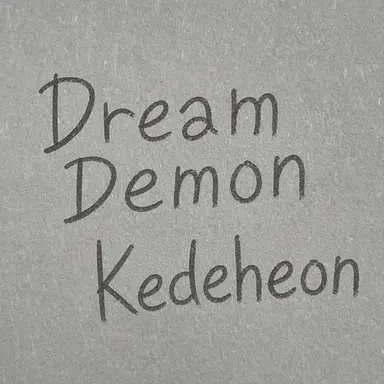 Dream
Demon
Kedeheon